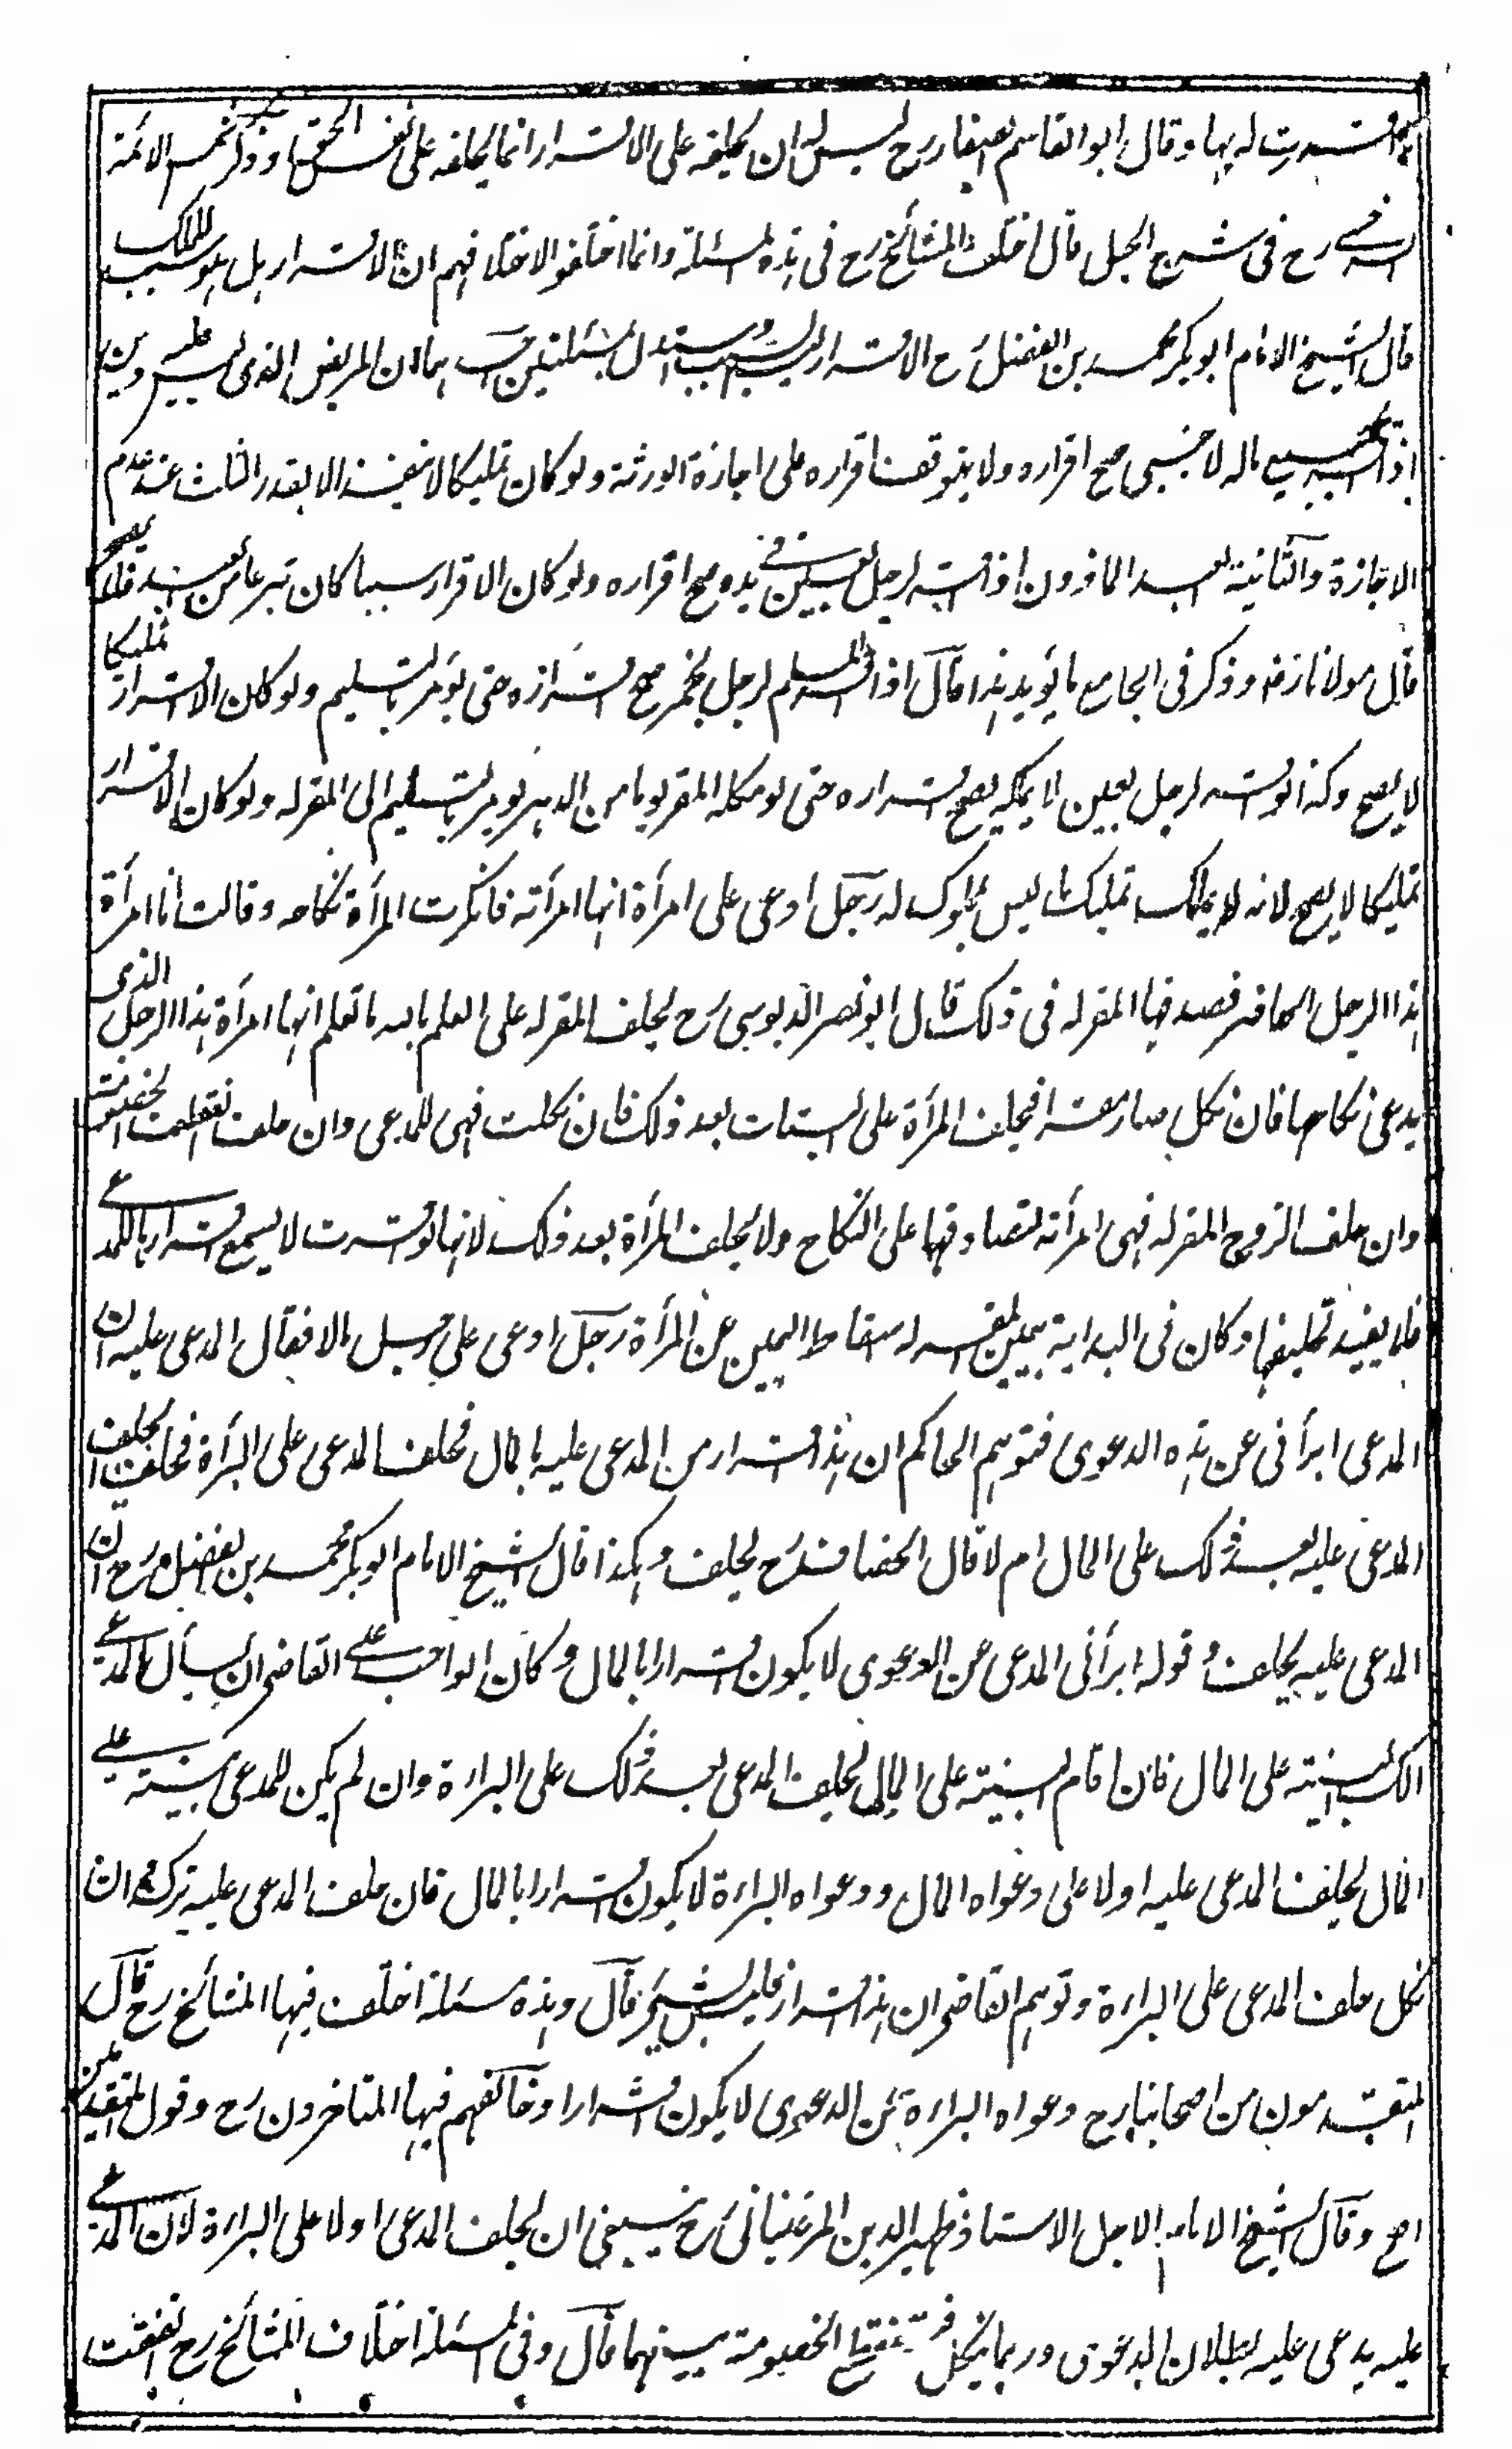 اقررت له بها وقال ابو القاسم الصفار رح ليس له ان يحلفه على الاقرار انما يحلفه على نفس الحق وذكر شمس الائمة
السرخسي رح في شرح الحيل قال اختلف المشائخ رح في هذه المسئلة وانما اختلفوا لاختلافهم ان الاقرار هل هو سبب للملك
قال الشيخ الامام ابو بكر محمد بن الفضل رح الاقرار ليس بسبب واستدل بمسئلتين احدهما ان المريض الذي ليس عليه دين
اذا اقر بجميع ماله لاجنبي صح اقراره ولا يتوقف اقراره على اجازة الورثة ولو كان تمليكا لا ينفذ الا بقدر الثلث عند عدم
الاجازة والثانية العبد الماذون اذا اقر لرجل بعين في يده صح اقراره ولو كان الاقرار سببا كان تبرعا من العبد فلا يصح
قال مولانا رض وذكر في الجامع ما يؤيد هذا قال اذا اقر المسلم لرجل بخمر صح اقراره حتى يؤمر بالتسليم ولو كان الاقرار تمليكا
لا يصح وكذا لو اقر لرجل بعين لا يملكه يصح اقراره حتى لو ملكه المقر يوما من الدهر يؤمر بالتسليم الى المقر له ولو كان الاقرار
تمليكا لا يصح لانه لا يملك تمليك ما ليس بمملوك له رجل ادعى على امرأة انها امرأته فانكرت المرأة نكاحه وقالت انا امرأة
هذا الرجل الحاضر فصدقها المقر له في ذلك قال ابو نصر الدبوسي رح يحلف المقر له على العلم بالله ما تعلم انها امرأة هذا الرجل الذي
يدعي نكاحها فان نكل صار مقرا فيحلف المرأة على البتات بعد ذلك فان نكلت فهي للمدعي وان حلف انقطعت الخصومة
وان حلف الزوج المقر له فهي امرأته لتصادقهما على النكاح ولا يحلف المرأة بعد ذلك لانها لو اقرت لا يسمع اقرارها للمدعى
فلا يفيد تحليفها وكان في البداية بيمين المقر له اسقاط اليمين عن المرأة رجل ادعى على رجل مالا فقال المدعى عليه ان
المدعي ابرأني عن هذه الدعوى فتوهم الحاكم ان هذا اقرار من المدعى عليه بالمال فحلف المدعي على البرأة فحلف ايحلف
المدعى عليه بعد ذلك على المال ام لا قال الخصاف رح يحلف وهكذا قال الشيخ الامام ابو بكر محمد بن الفضل رح ان
المدعى عليه يحلف وقوله ابرأني المدعي عن الدعوى لا يكون اقرارا بالمال وكان الواجب على القاضي ان يسأل المدعى
الك البينة على المال فان اقام البينة على المال يحلف المدعي بعد ذلك على البراءة وان لم يكن للمدعي بينة على
المال يحلف المدعى عليه اولا على دعواه المال ودعواه البراءة لا يكون اقرارا بالمال فان حلف المدعى عليه ترك وان
نكل حلف المدعي على البراءة وتوهم القاضي ان هذا اقرار فليس بشيء قال وهذه مسئلة اختلف فيها المشائخ رح قال
المتقدمون من اصحابنا رح دعواه البراءة عن الدعوى لا يكون اقرارا وخالفهم فيها المتاخرون رح وقول المتقدمين
اصح وقال الشيخ الامام الاجل الاستاذ ظهير الدين المرغيناني رح ينبغي ان يحلف المدعي اولا على البراءة لان المدعى
عليه يدعي عليه بطلان الدعوى وربما ينكل فتنقطع الخصومة بينهما قال وفي المسئلة اختلاف المشائخ رح اتفقت